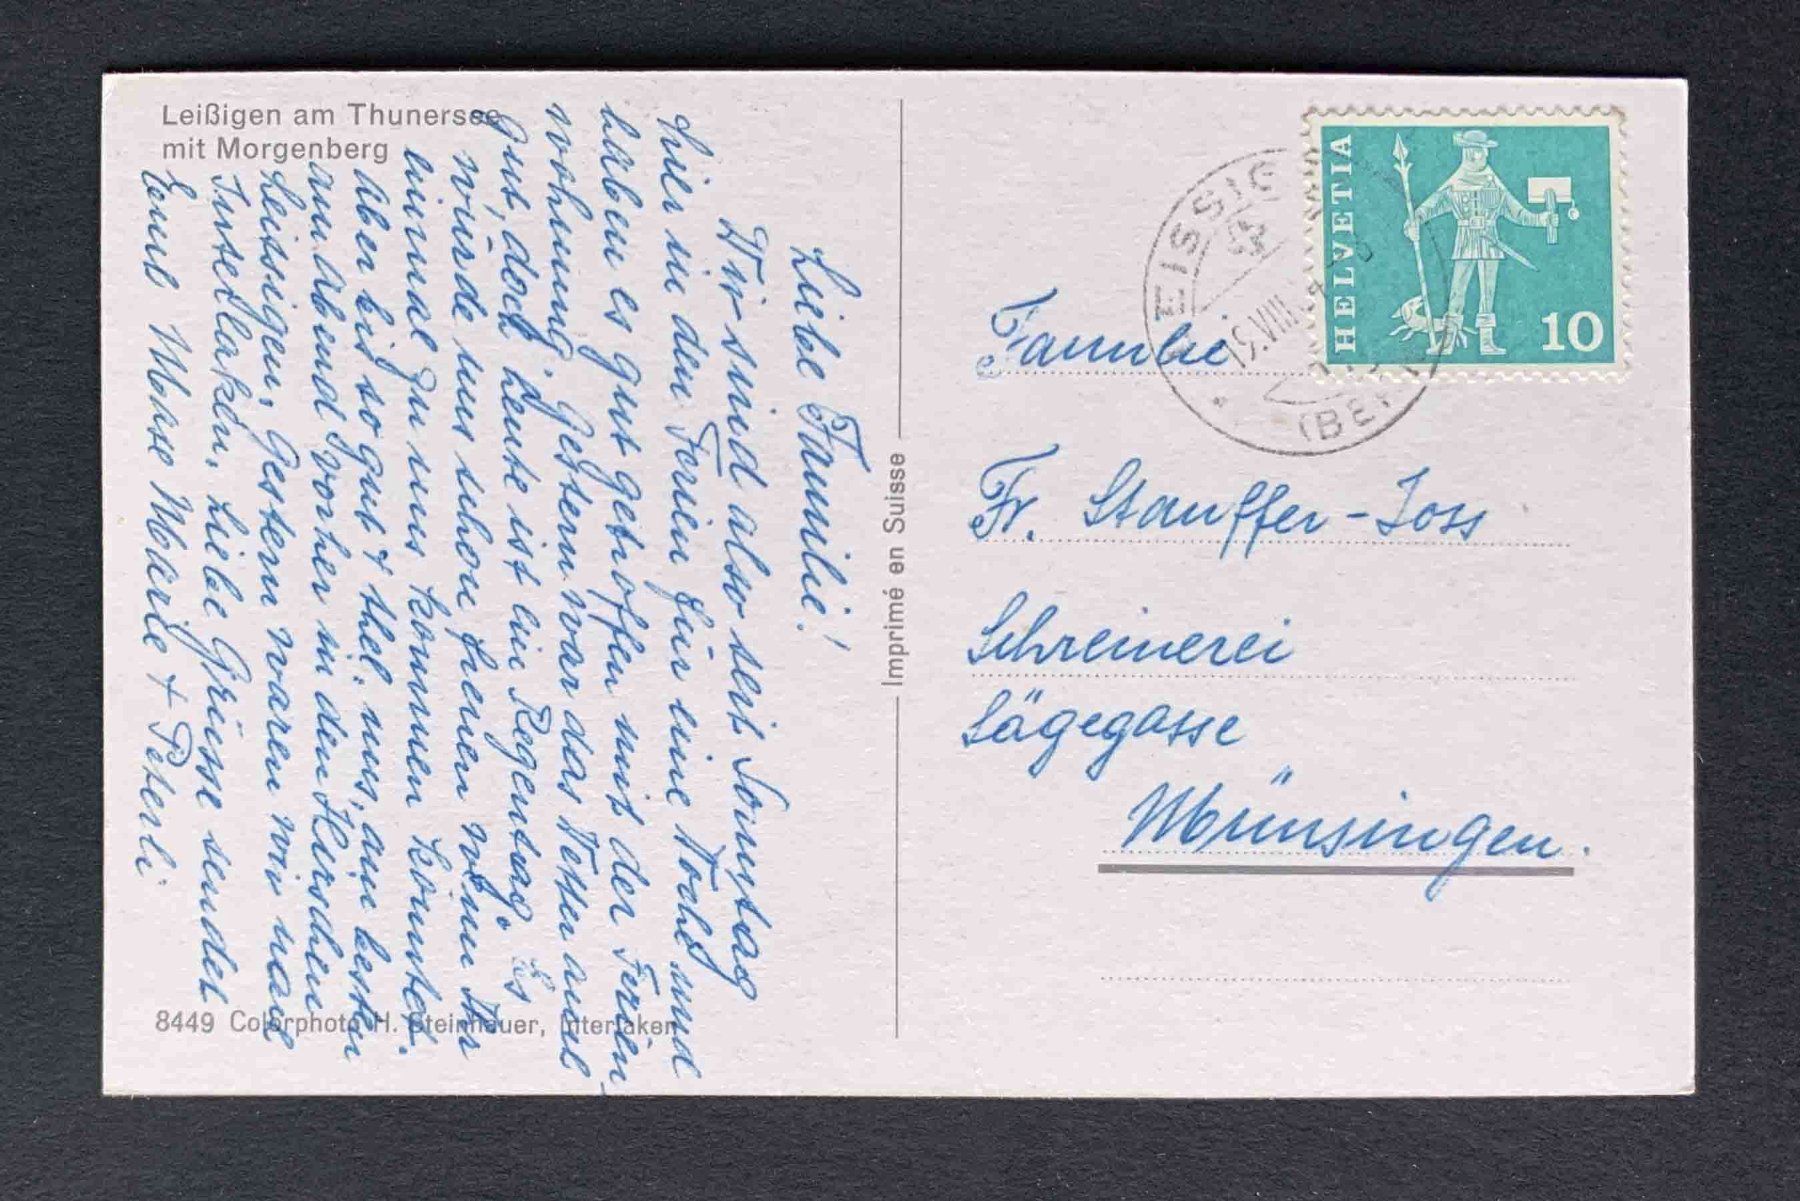 Leißigen am Thunersee
mit Morgenberg
Liebe Familie!
Wir sind also seit Sonntag
hier in den Ferien für eine Woche und
haben es gut getroffen mit der Ferien-
wohnung. Gestern war das Wetter auch
gut, doch heute ist ein Regentag. Es
würde uns schon freuen wenn Ihr
einmal zu uns kommen könntet.
Aber bis so gut & thel. uns, am besten
am Abend vorher in den Hirschen
Leissigen. Gestern waren wir nach
Interlaken. Liebe Grüsse sendet
Euch Mose Marie + Peterli
8449 Colorphoto H. Steinhauer, Interlaken
Imprimé en Suisse
HELVETIA
10
LEISSIG
19.VIII.
(BERN)
Familie
Fr. Stauffer-Joss
Schreinerei
Sägegasse
Münsingen.